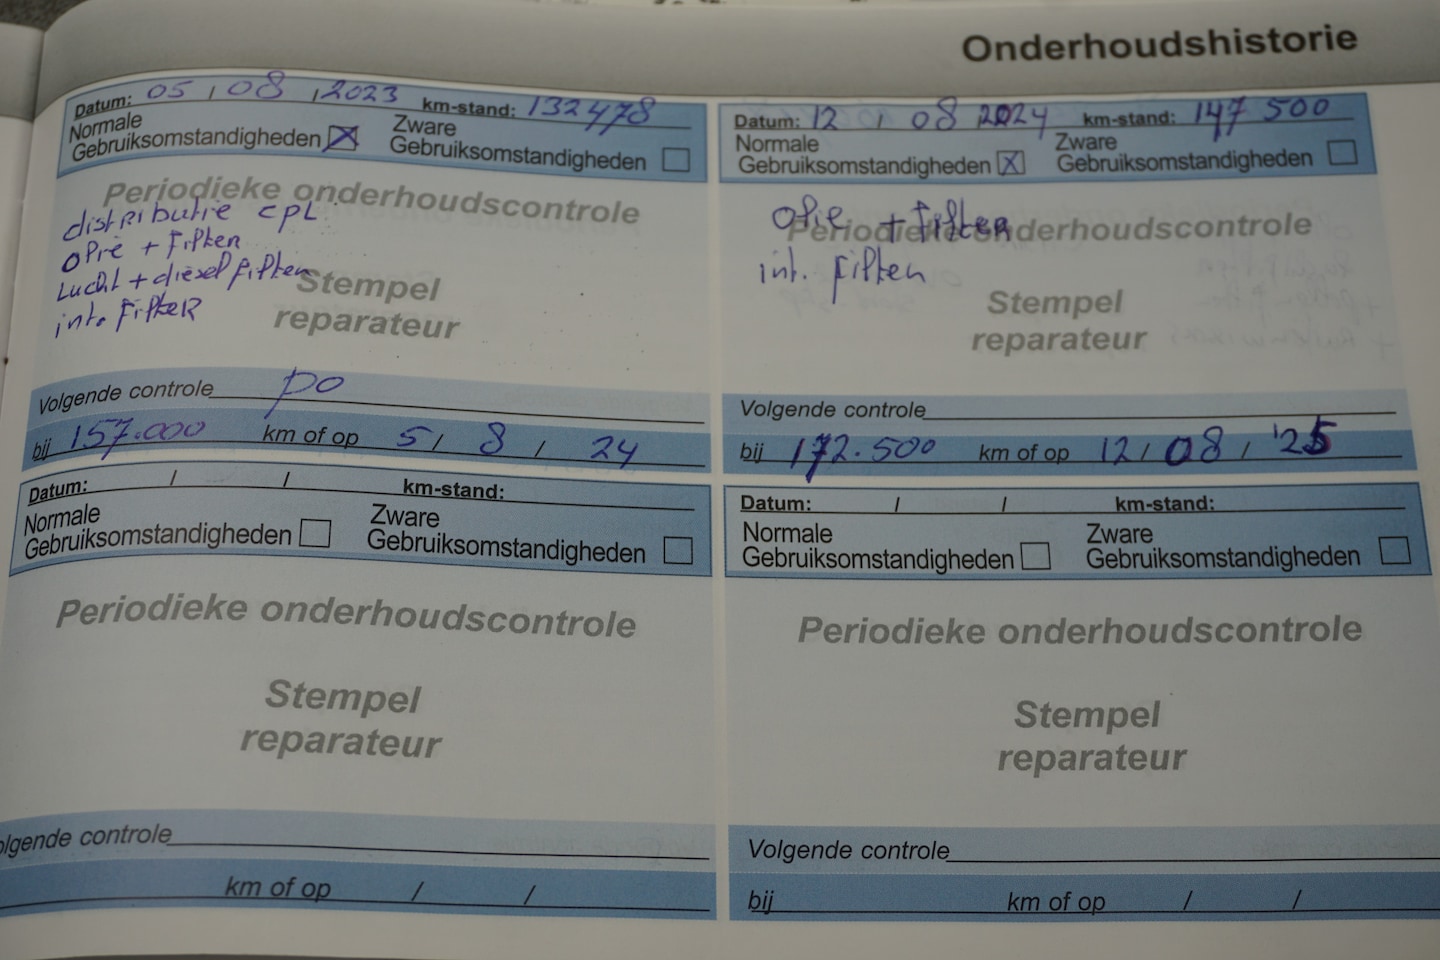 Onderhoudshistorie
Datum: 05 / 08 / 2023 km-stand: 132478
Normale
Gebruiksomstandigheden X
Zware
Gebruiksomstandigheden
Periodieke onderhoudscontrole
distributie cpl.
olie + Filter
Lucht + diesel filter
int. Filter
Stempel
reparateur
Volgende controle po
bij 157.000 km of op 5 / 8 / 24
Datum: 12 / 08 2024 km-stand: 147 500
Normale
Gebruiksomstandigheden X
Zware
Gebruiksomstandigheden
Olie + Filter
Periodieke onderhoudscontrole
int. Filter
Stempel
reparateur
Volgende controle
bij 172.500 km of op 12 / 08 / '25
Datum: / / km-stand:
Normale
Gebruiksomstandigheden
Zware
Gebruiksomstandigheden
Periodieke onderhoudscontrole
Stempel
reparateur
olgende controle
km of op / /
Datum: / / km-stand:
Normale
Gebruiksomstandigheden
Zware
Gebruiksomstandigheden
Periodieke onderhoudscontrole
Stempel
reparateur
Volgende controle
bij km of op / /